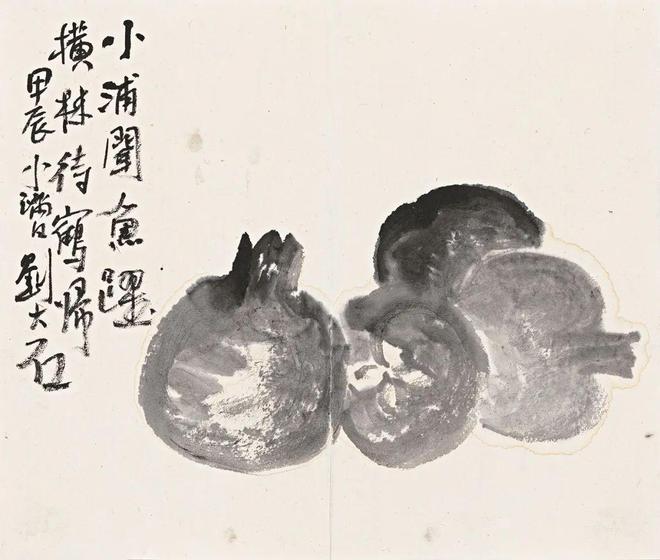 小浦聞魚躍
橫林待鶴歸
甲辰小滿日劉大石